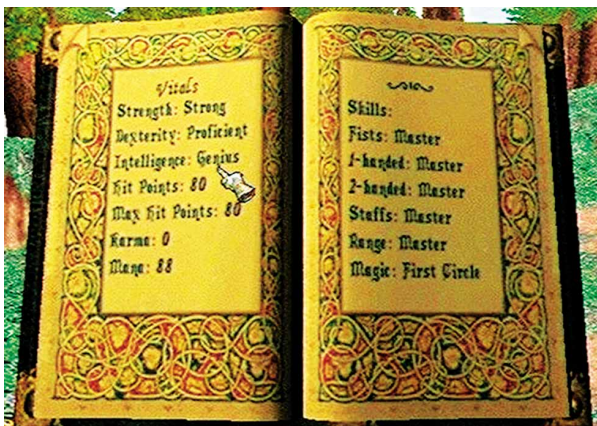 Vitals
Strength: Strong
Dexterity: Proficient
Intelligence: Genius
Hit Points: 80
Max Hit Points: 80
Karma: 0
Mana: 88
Skills:
Fists: Master
1-handed: Master
2-handed: Master
Staffs: Master
Range: Master
Magic: First Circle